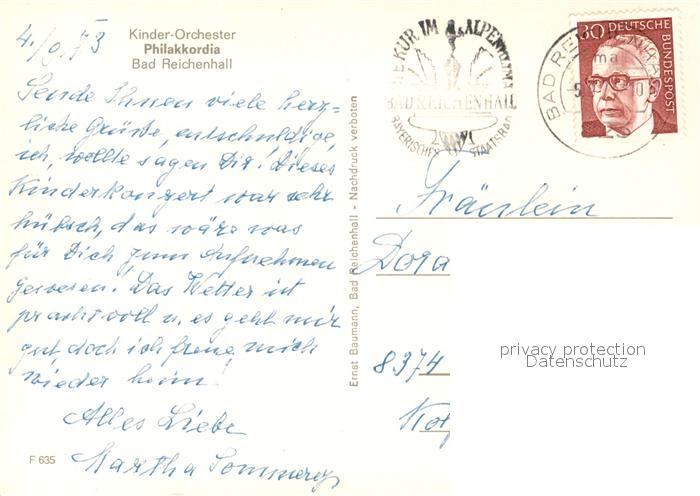 Kinder-Orchester
Philakkordia
Bad Reichenhall
Sende Ihnen viele herz=
liche Grüße, entschuldige,
ich wollte sagen Dir! Dieses
Kinderkonzert war sehr
hübsch, das wäre was
für Dich zum Aufnehmen
gewesen! Das Wetter ist
prachtvoll u. es geht mir
gut, doch ich freue mich
wieder heim!
Alles Liebe
Martha
F 635
Ernst Baumann, Bad Reichenhall - Nachdruck verboten
KUR IM ALPENKLIMA
BAD REICHENHALL
BAYERISCHES STAATSBAD
BAD REICHENHALL
30 DEUTSCHE BUNDESPOST
Fräulein
Dora
8374
privacy protection
Datenschutz